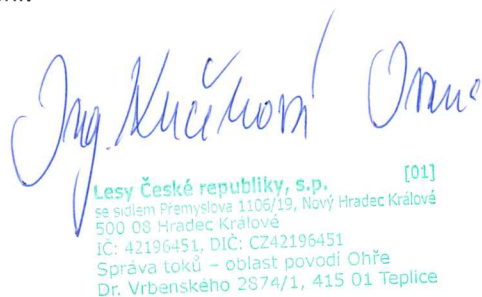 Ing.
Lesy České republiky, s.p. [01]
se sídlem Přemyslova 1106/19, Nový Hradec Králové
500 08 Hradec Králové
IČ: 42196451, DIČ: CZ42196451
Správa toků – oblast povodí Ohře
Dr. Vrbenského 2874/1, 415 01 Teplice